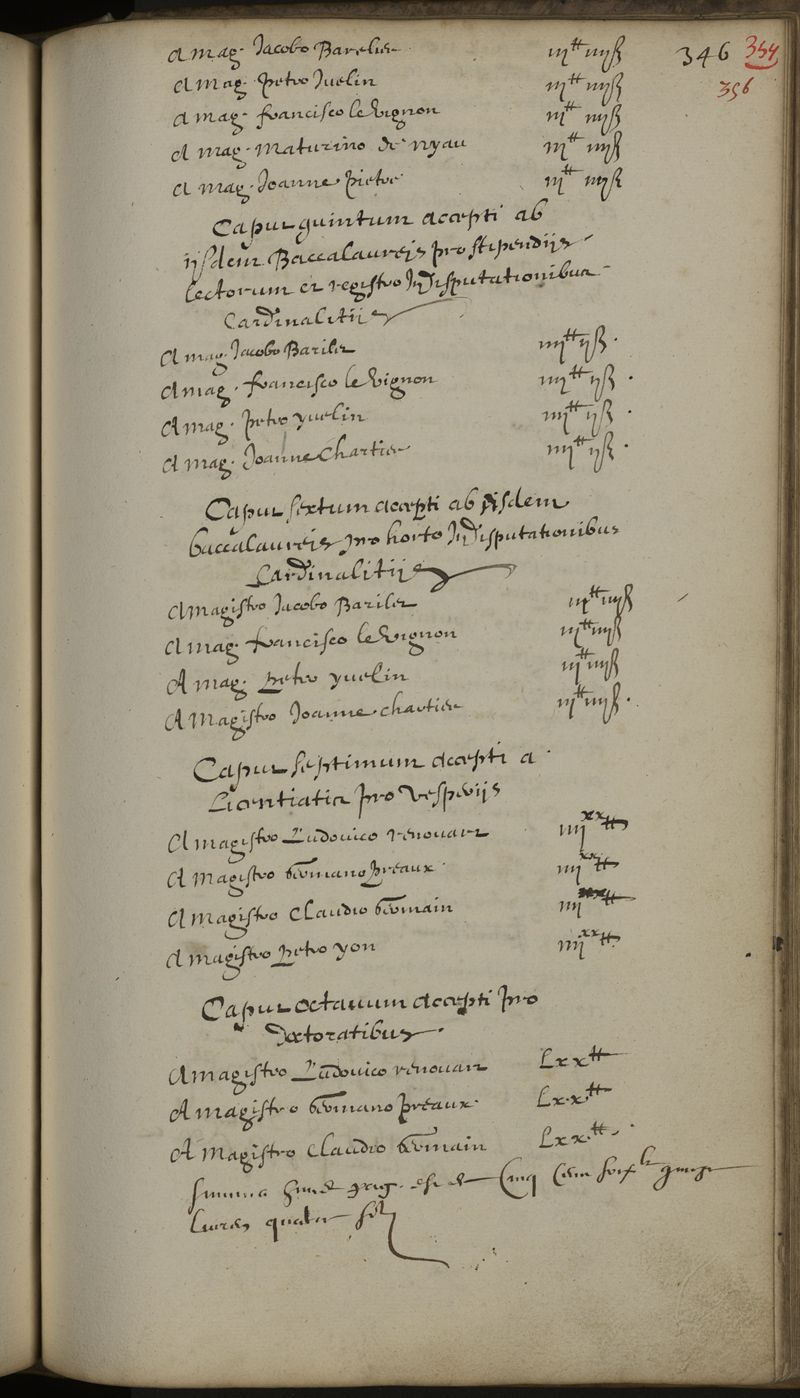 A mag. Jacobo Barelier iij tt iiij ß 346 354
A mag. Petro Iuelin iij tt iiij ß 356
A mag. francisco le Vignon iij tt iiij ß
A mag. Maturino de nyau iij tt iiij ß
A mag. Joanne Pietre iij tt iiij ß
Caput quintum accepti ab
ijsdem Baccalaureis pro stipendijs
lectorum et registro In disputationibus
Cardinalitiis
A mag. Jacobo Bariler iiij tt ij ß
A mag. francisco le Vignon iiij tt ij ß
A mag. Petro yuelin iiij tt ij ß
A mag. Joanne Chartier iiij tt ij ß
Caput sextum accepti ab ijsdem
baccalaureis pro horto In disputationibus
Cardinalitiis
A magistro Jacobo Bariler iij tt iiij ß
A mag. francisco le Vignon iij tt iiij ß
A mag. Petro yuelin iij tt iiij ß
A Magistro Joanne chartier iij tt iiij ß
Caput septimum accepti a
Licentiatis pro vesperijs
A magistro Ludouico renouart iiij xx tt
A magistro Germano Preaux iiij xx tt
A magistro Claudio Germain iiij xx tt
A magistro Petro yon iiij xx tt
Caput octauum accepti pro
doctoratibus
A magistro Ludouico renouart Lxx tt
A magistro Germano Preaux Lxx tt
A Magistro Claudio Germain Lxx tt
summa est Cinq Cens
liures quatre solz